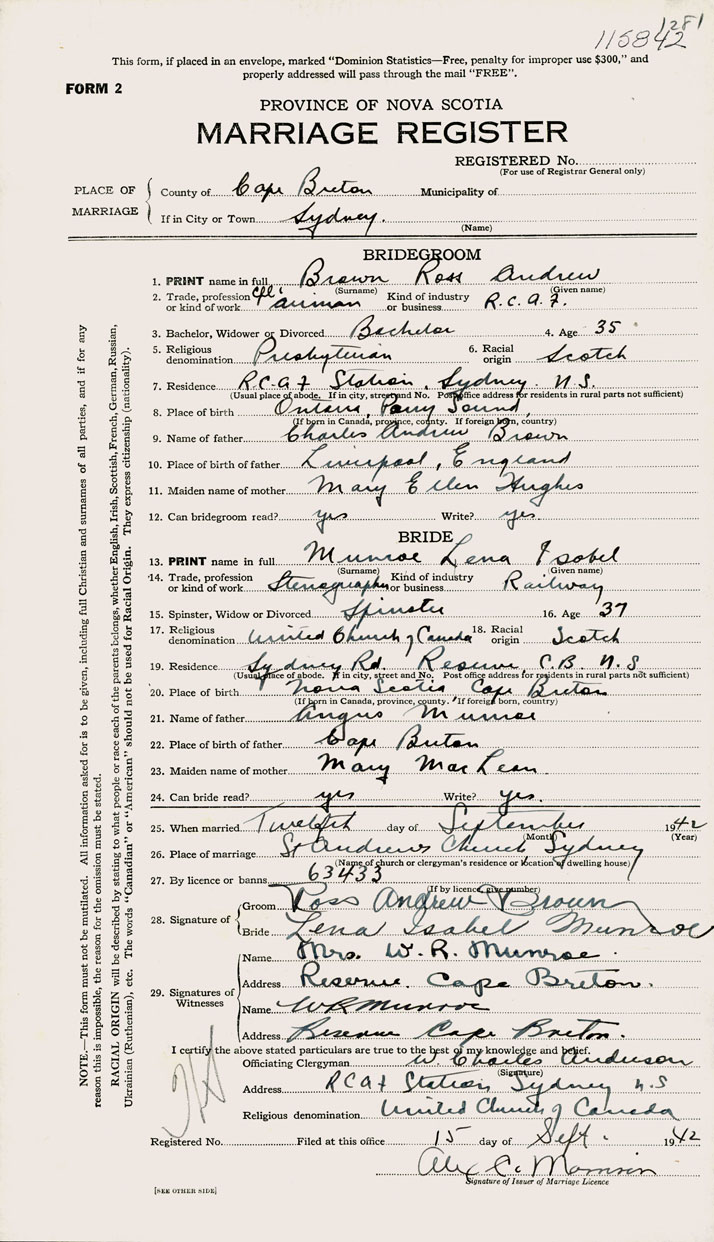 1281
115842
This form, if placed in an envelope, marked "Dominion Statistics—Free, penalty for improper use $300," and
properly addressed will pass through the mail "FREE".
FORM 2
PROVINCE OF NOVA SCOTIA
MARRIAGE REGISTER
REGISTERED No.
(For use of Registrar General only)
PLACE OF MARRIAGE
County of Cape Breton Municipality of
If in City or Town Sydney.
(Name)
BRIDEGROOM
1. PRINT name in full Brown Ross Andrew
(Surname) (Given name)
2. Trade, profession or kind of work Cpl. airman Kind of industry or business R.C.A.F.
3. Bachelor, Widower or Divorced Bachelor 4. Age 35
5. Religious denomination Presbyterian 6. Racial origin Scotch
7. Residence R.C.A.F Station, Sydney. N.S.
(Usual place of abode. If in city, street and No. Post office address for residents in rural parts not sufficient)
8. Place of birth Ontario, Parry Sound,
(If born in Canada, province, county. If foreign born, country)
9. Name of father Charles Andrew Brown
10. Place of birth of father Liverpool, England
11. Maiden name of mother Mary Ellen Hughes
12. Can bridegroom read? yes Write? yes.
BRIDE
13. PRINT name in full Munroe Lena Isobel
(Surname) (Given name)
14. Trade, profession or kind of work Stenographer Kind of industry or business Railway
15. Spinster, Widow or Divorced Spinster 16. Age 37
17. Religious denomination United Church of Canada 18. Racial origin Scotch
19. Residence Sydney Rd. Reserve, C.B. N.S
(Usual place of abode. If in city, street and No. Post office address for residents in rural parts not sufficient)
20. Place of birth Nova Scotia Cape Breton
(If born in Canada, province, county. If foreign born, country)
21. Name of father Angus Munroe
22. Place of birth of father Cape Breton
23. Maiden name of mother Mary MacLean.
24. Can bride read? yes Write? yes.
25. When married Twelfth day of September 1942
(Month) (Year)
26. Place of marriage St Andrews Church Sydney
(Name of church or clergyman's residence or location of dwelling house)
27. By licence or banns 63433
(If by licence, give number)
28. Signature of Groom Ross Andrew Brown
Bride Lena Isabel Munroe
29. Signatures of Witnesses Name Mrs. W. R. Munroe.
Address Reserve. Cape Breton.
Name W R Munroe
Address Reserve Cape Breton.
I certify the above stated particulars are true to the best of my knowledge and belief.
Officiating Clergyman W. Charles Anderson
(Signature)
Address RCAF Station Sydney N.S
Religious denomination United Church of Canada
Registered No. Filed at this office 15 day of Sept. 1942
Alex C. Morrison
Signature of Issuer of Marriage Licence
[SEE OTHER SIDE]
NOTE.—This form must not be mutilated. All information asked for is to be given, including full Christian and surnames of all parties, and if for any
reason this is impossible, the reason for the omission must be stated.
RACIAL ORIGIN will be described by stating to what people or race each of the parents belongs, whether English, Irish, Scottish, French, German, Russian,
Ukrainian (Ruthenian), etc. The words "Canadian" or "American" should not be used for Racial Origin. They express citizenship (nationality).